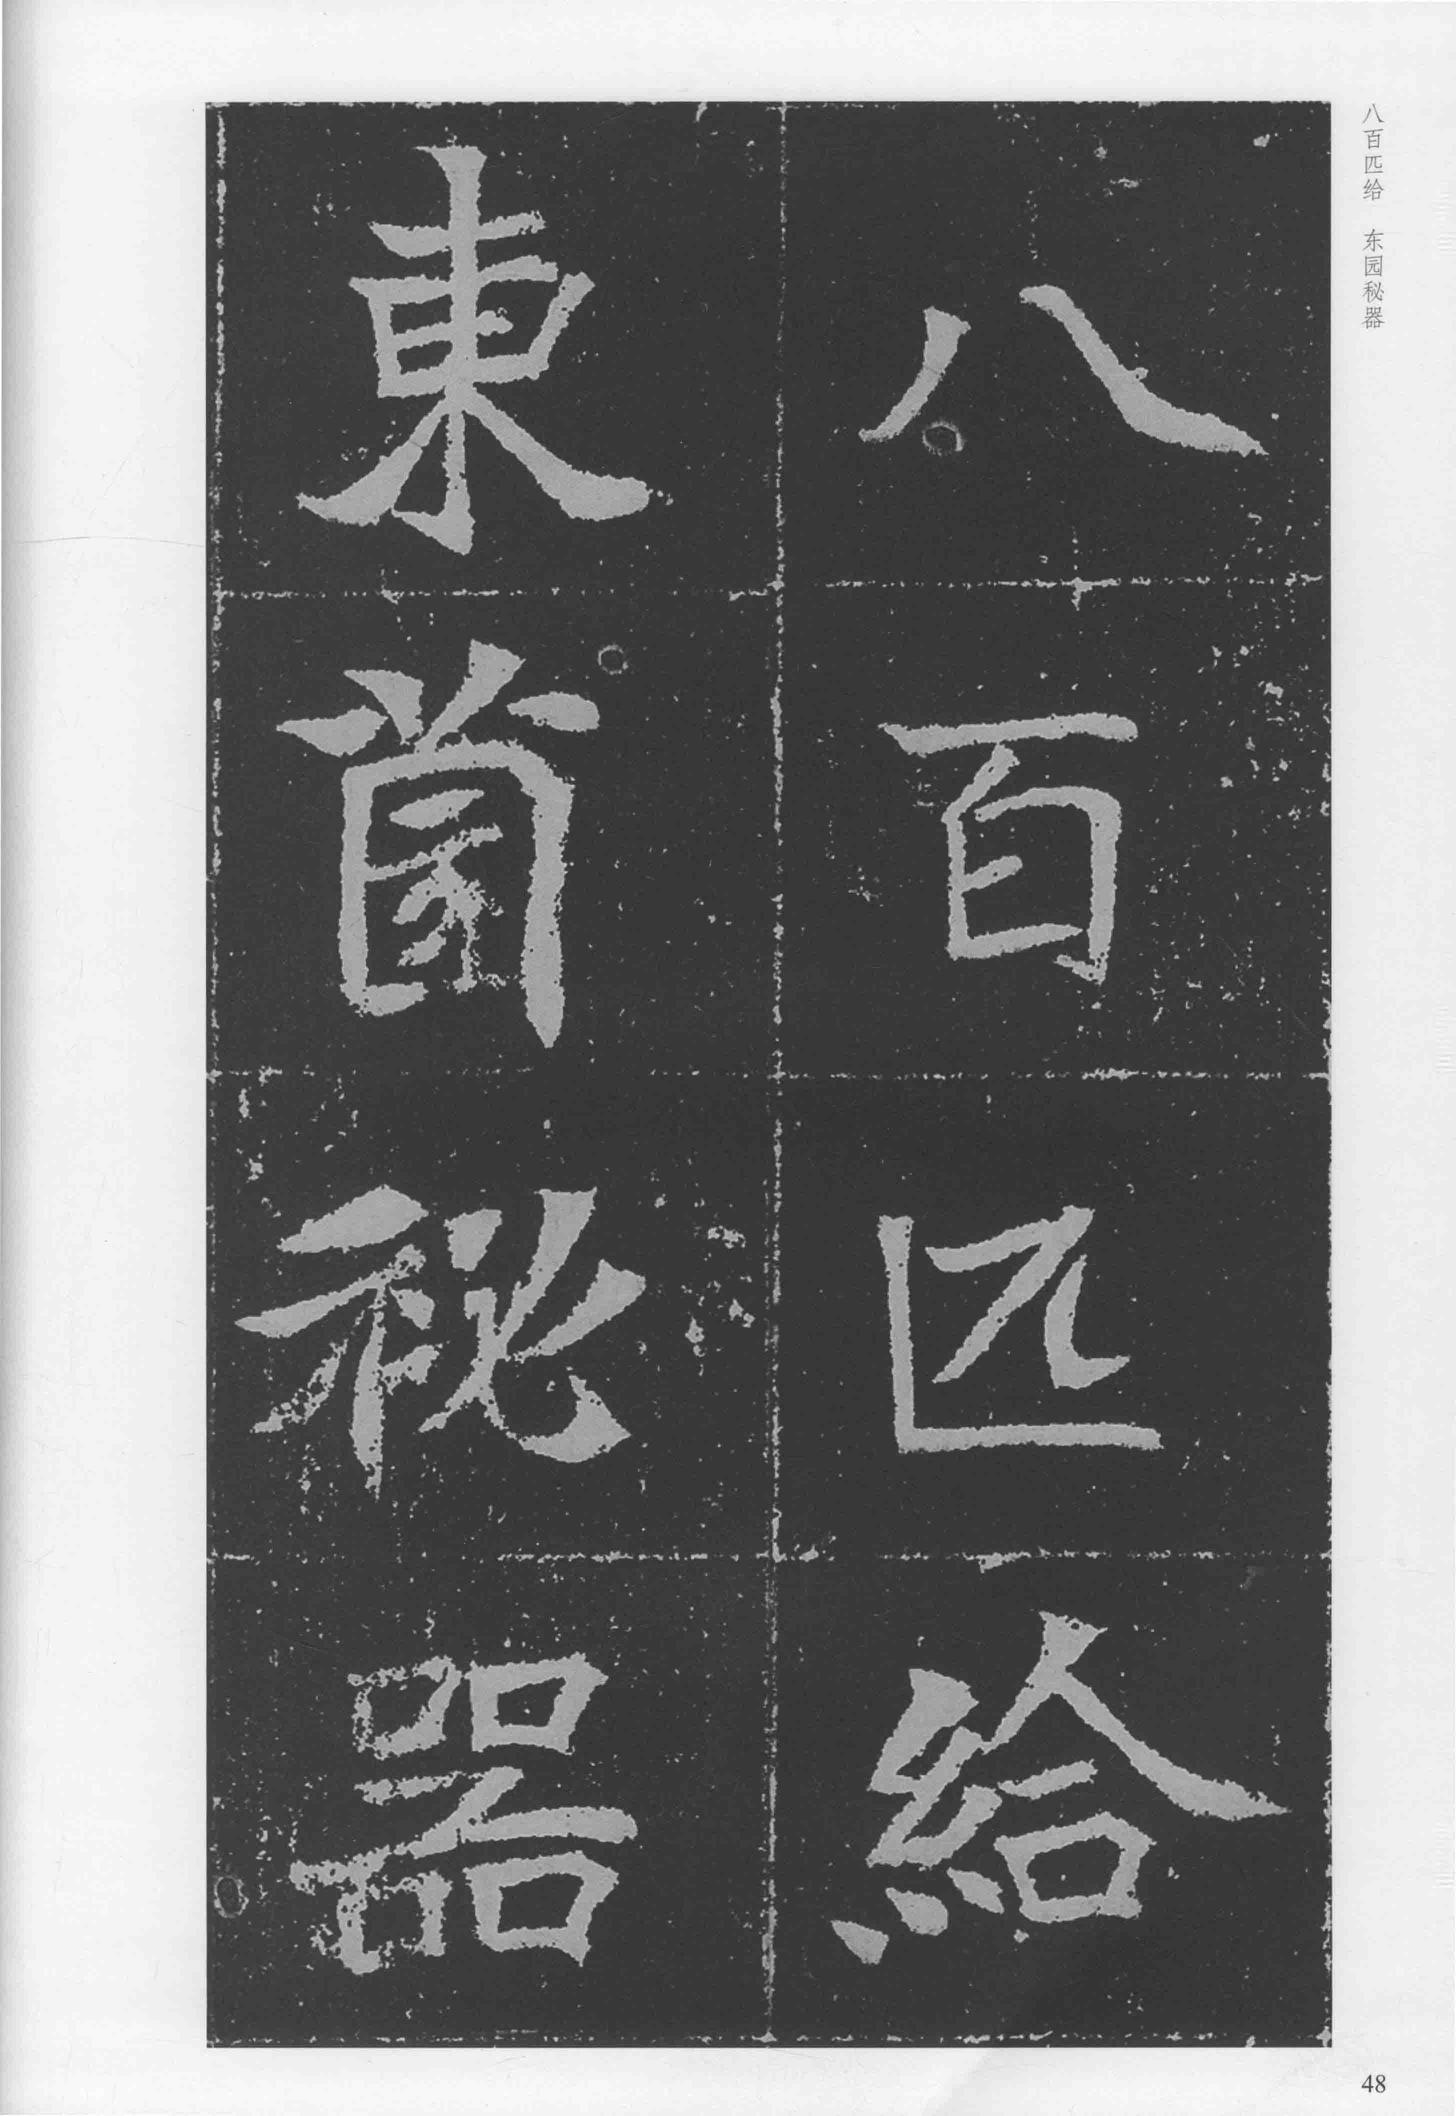 八百匹给 东园秘器
八百匹給
東園秘器
48